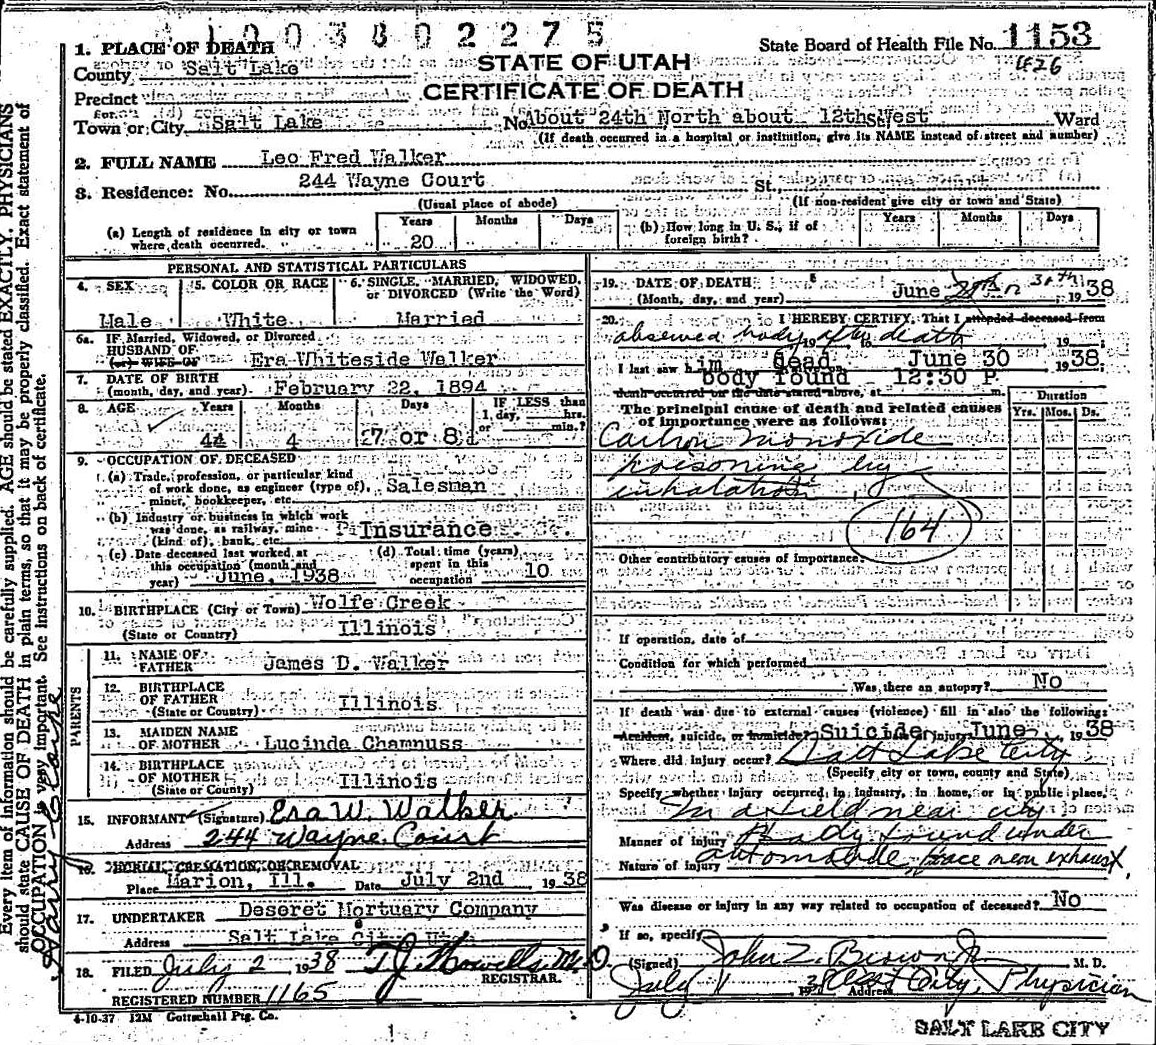 1003802275
State Board of Health File No. 1153
426
1. PLACE OF DEATH
County Salt Lake
STATE OF UTAH
Precinct
CERTIFICATE OF DEATH
Town or City Salt Lake No. About 24th North about 12th St. West Ward
(If death occurred in a hospital or institution, give its NAME instead of street and number)
2. FULL NAME Leo Fred Walker
3. Residence: No. 244 Wayne Court St.
(Usual place of abode) (If non-resident give city or town and State)
(a) Length of residence in city or town where death occurred. Years 20 Months Days
(b) How long in U. S., if of foreign birth? Years Months Days
PERSONAL AND STATISTICAL PARTICULARS
4. SEX Male
5. COLOR OR RACE White
6. SINGLE, MARRIED, WIDOWED, or DIVORCED (Write the Word) Married
6a. If Married, Widowed, or Divorced
HUSBAND OF
(or) WIFE OF Era Whiteside Walker
7. DATE OF BIRTH
(month, day, and year) February 22, 1894
8. AGE Years 44 Months 4 Days 7 or 8 IF LESS than 1 day, hrs. or min.?
9. OCCUPATION OF DECEASED
(a) Trade, profession, or particular kind
of work done, as engineer (type of), Salesman
miner, bookkeeper, etc.
(b) Industry or business in which work
was done, as railway, mine Insurance
(kind of), bank, etc.
(c) Date deceased last worked at
this occupation (month and
year) June, 1938
(d) Total time (years)
spent in this
occupation 10
10. BIRTHPLACE (City or Town) Wolfe Creek
(State or Country) Illinois
PARENTS
11. NAME OF
FATHER James D. Walker
12. BIRTHPLACE
OF FATHER
(State or Country) Illinois
13. MAIDEN NAME
OF MOTHER Lucinda Chamnuss
14. BIRTHPLACE
OF MOTHER
(State or County) Illinois
15. INFORMANT (Signature) Era W. Walker
Address 244 Wayne Court
16. BURIAL, CREMATION, OR REMOVAL
Place Marion, Ill. Date July 2nd 1938
17. UNDERTAKER Deseret Mortuary Company
Address Salt Lake City, Utah
18. FILED July 2 1938 T J Howells M.D.
REGISTRAR.
REGISTERED NUMBER 1165
4-10-37 12M Gottschall Ptg. Co.
19. DATE OF DEATH
(Month, day, and year) June 30th 1938
20. I HEREBY CERTIFY, That I attended deceased from
observed body after death 19
I last saw him dead on June 30 1938
body found 12:30 P.
death occurred on the date stated above, at m.
The principal cause of death and related causes
of importance were as follows:
Duration
Yrs. Mos. Ds.
Carbon monoxide
poisoning by
inhalation.
164
Other contributory causes of importance:
If operation, date of
Condition for which performed
Was there an autopsy? No
If death was due to external causes (violence) fill in also the following:
Accident, suicide, or homicide? Suicide injury June 1938
Where did injury occur? Salt Lake City
(Specify city or town, county and State)
Specify whether injury occurred in industry, in home, or in public place.
In a field near city
Manner of injury Body found under
Nature of injury automobile face near exhaust.
Was disease or injury in any way related to occupation of deceased? No
If so, specify
(Signed) John Z. Brown Jr M. D.
July 1 1938 Address City Physician
SALT LAKE CITY
Every item of information should be carefully supplied. AGE should be stated EXACTLY. PHYSICIANS
should state CAUSE OF DEATH in plain terms, so that it may be properly classified. Exact statement of
OCCUPATION is very important. See instructions on back of certificate.